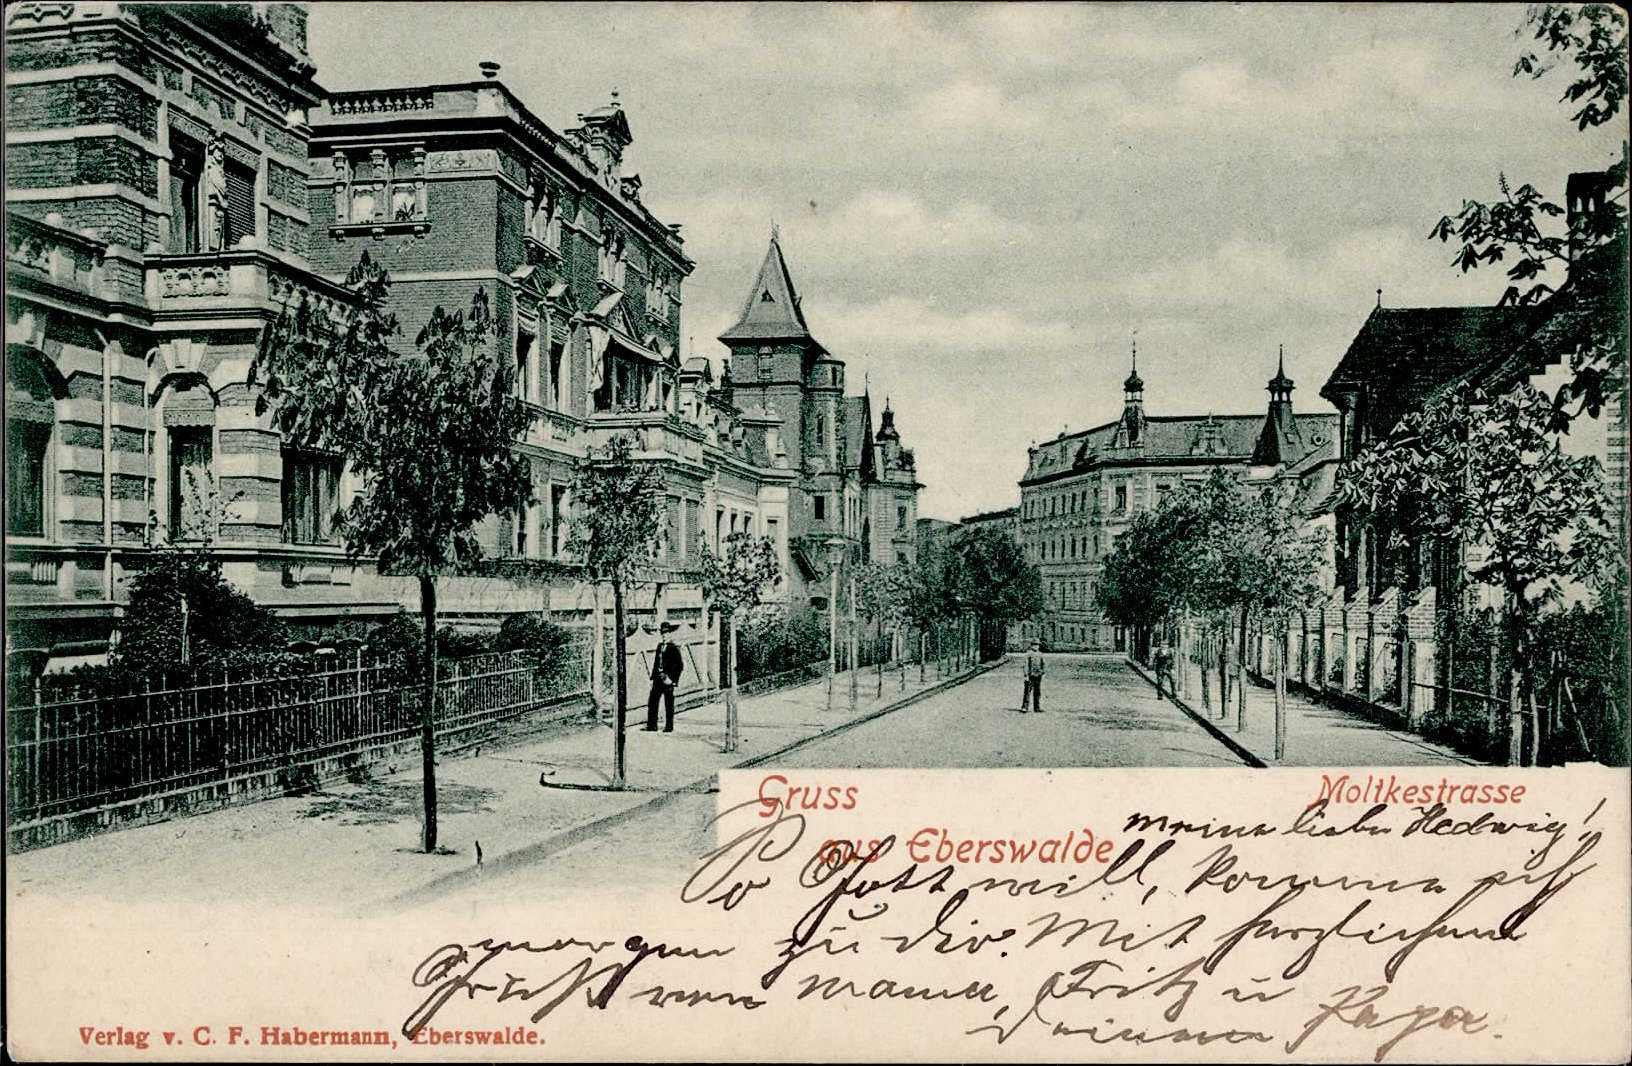 Gruss
aus Eberswalde
Moltkestrasse
meine liebe Hedwig!
So Gott will, komme ich
morgen zu dir. Mit herzlichem
Gruß von Mama, Fritz u
deinem Papa.
Verlag v. C. F. Habermann, Eberswalde.